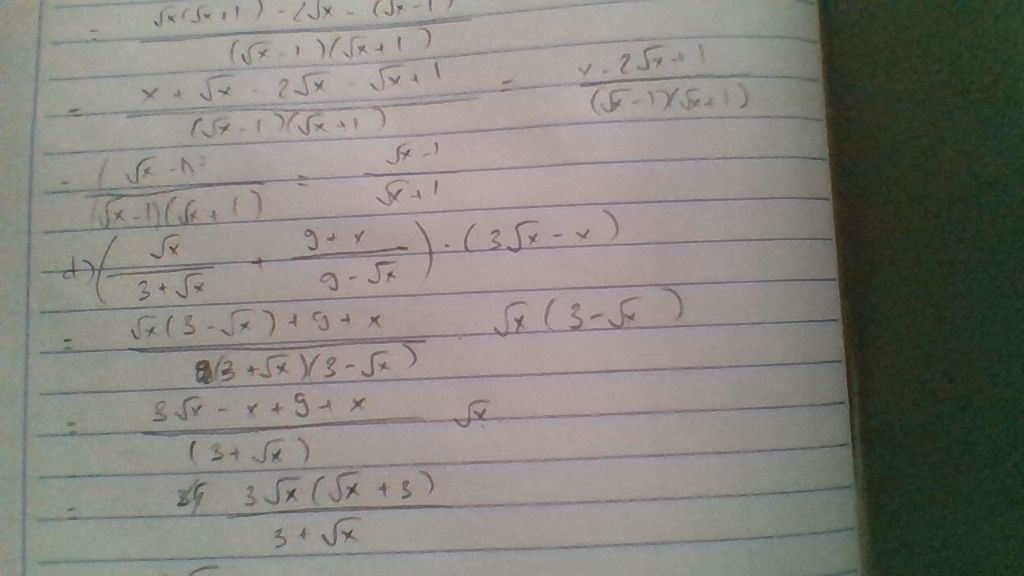 = (√x(√x+1) - 2√x - (√x-1))/((√x-1)(√x+1))
= (x + √x - 2√x - √x + 1)/((√x-1)(√x+1)) = (x - 2√x + 1)/((√x-1)(√x+1))
= (√x-1)²/((√x-1)(√x+1)) = (√x-1)/(√x+1)
d) (√x/(3+√x) + (9+x)/(9-√x)) · (3√x - x)
= (√x(3-√x) + 9 + x)/((3+√x)(3-√x)) √x(3-√x)
= (3√x - x + 9 + x)/(3+√x) √x
= 3√x(√x+3)/(3+√x)